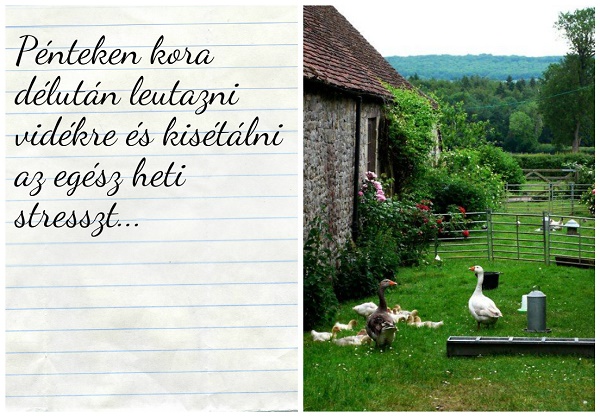 Pénteken kora
délután leutazni
vidékre és kisétálni
az egész heti
stresszt...